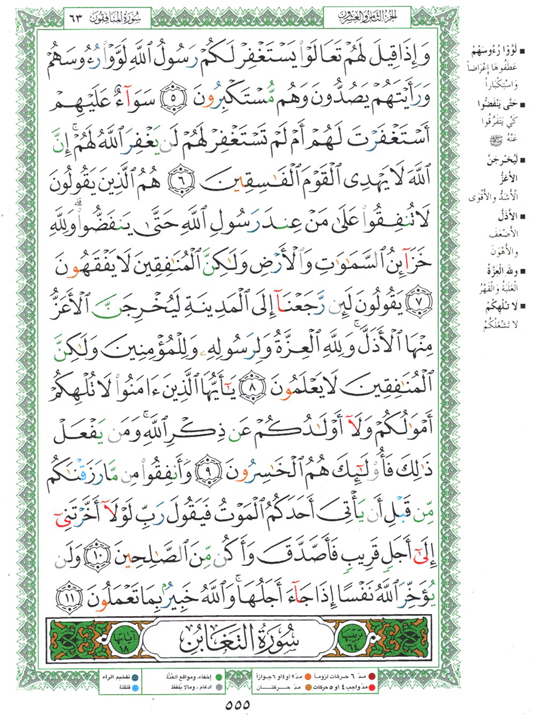 سُورَةُ المُنَافِقُونَ ٦٣
الجُزءُ الثَّامِنُ وَالعِشْرُونَ
وَإِذَا قِيلَ لَهُمْ تَعَالَوْا۟ يَسْتَغْفِرْ لَكُمْ رَسُولُ ٱللَّهِ لَوَّوْا۟ رُءُوسَهُمْ
وَرَأَيْتَهُمْ يَصُدُّونَ وَهُم مُّسْتَكْبِرُونَ ۝٥ سَوَآءٌ عَلَيْهِمْ
أَسْتَغْفَرْتَ لَهُمْ أَمْ لَمْ تَسْتَغْفِرْ لَهُمْ لَن يَغْفِرَ ٱللَّهُ لَهُمْ ۚ إِنَّ
ٱللَّهَ لَا يَهْدِى ٱلْقَوْمَ ٱلْفَـٰسِقِينَ ۝٦ هُمُ ٱلَّذِينَ يَقُولُونَ
لَا تُنفِقُوا۟ عَلَىٰ مَنْ عِندَ رَسُولِ ٱللَّهِ حَتَّىٰ يَنفَضُّوا۟ ۗ وَلِلَّهِ
خَزَآئِنُ ٱلسَّمَـٰوَٰتِ وَٱلْأَرْضِ وَلَـٰكِنَّ ٱلْمُنَـٰفِقِينَ لَا يَفْقَهُونَ
۝٧ يَقُولُونَ لَئِن رَّجَعْنَآ إِلَى ٱلْمَدِينَةِ لَيُخْرِجَنَّ ٱلْأَعَزُّ
مِنْهَا ٱلْأَذَلَّ ۚ وَلِلَّهِ ٱلْعِزَّةُ وَلِرَسُولِهِۦ وَلِلْمُؤْمِنِينَ وَلَـٰكِنَّ
ٱلْمُنَـٰفِقِينَ لَا يَعْلَمُونَ ۝٨ يَـٰٓأَيُّهَا ٱلَّذِينَ ءَامَنُوا۟ لَا تُلْهِكُمْ
أَمْوَٰلُكُمْ وَلَآ أَوْلَـٰدُكُمْ عَن ذِكْرِ ٱللَّهِ ۚ وَمَن يَفْعَلْ
ذَٰلِكَ فَأُو۟لَـٰٓئِكَ هُمُ ٱلْخَـٰسِرُونَ ۝٩ وَأَنفِقُوا۟ مِن مَّا رَزَقْنَـٰكُم
مِّن قَبْلِ أَن يَأْتِىَ أَحَدَكُمُ ٱلْمَوْتُ فَيَقُولَ رَبِّ لَوْلَآ أَخَّرْتَنِىٓ
إِلَىٰٓ أَجَلٍ قَرِيبٍ فَأَصَّدَّقَ وَأَكُن مِّنَ ٱلصَّـٰلِحِينَ ۝١٠ وَلَن
يُؤَخِّرَ ٱللَّهُ نَفْسًا إِذَا جَآءَ أَجَلُهَا ۚ وَٱللَّهُ خَبِيرٌۢ بِمَا تَعْمَلُونَ ۝١١
ترتيبها ٦٤
سُورَةُ التَّغَابُنِ
آياتها ١٨
لَوَّوْا رُءُوسَهُمْ
عَطَفُوهَا إِعْرَاضاً
وَاسْتِكْبَاراً
حَتَّى يَنْفَضُّوا
كَيْ يَتَفَرَّقُوا
عَنْهُ ﷺ
لَيُخْرِجَنَّ
الأَعَزُّ
الأَشَدُّ وَالأَقْوَى
الأَذَلَّ
الأَضْعَفَ
وَالأَهْوَنَ
وَلِلَّهِ العِزَّةُ
الغَلَبَةُ وَالقَهْرُ
لَا تُلْهِكُمْ
لَا تَشْغَلْكُمْ
مد ٦ حركات لزوماً
مد ٢ أو ٤ أو ٦ جوازاً
إخفاء، ومواقع الغُنَّة
تفخيم الراء
مد واجب ٤ أو ٥ حركات
مد حركتان
ادغام، وما لا يلفظ
قلقلة
٥٥٥